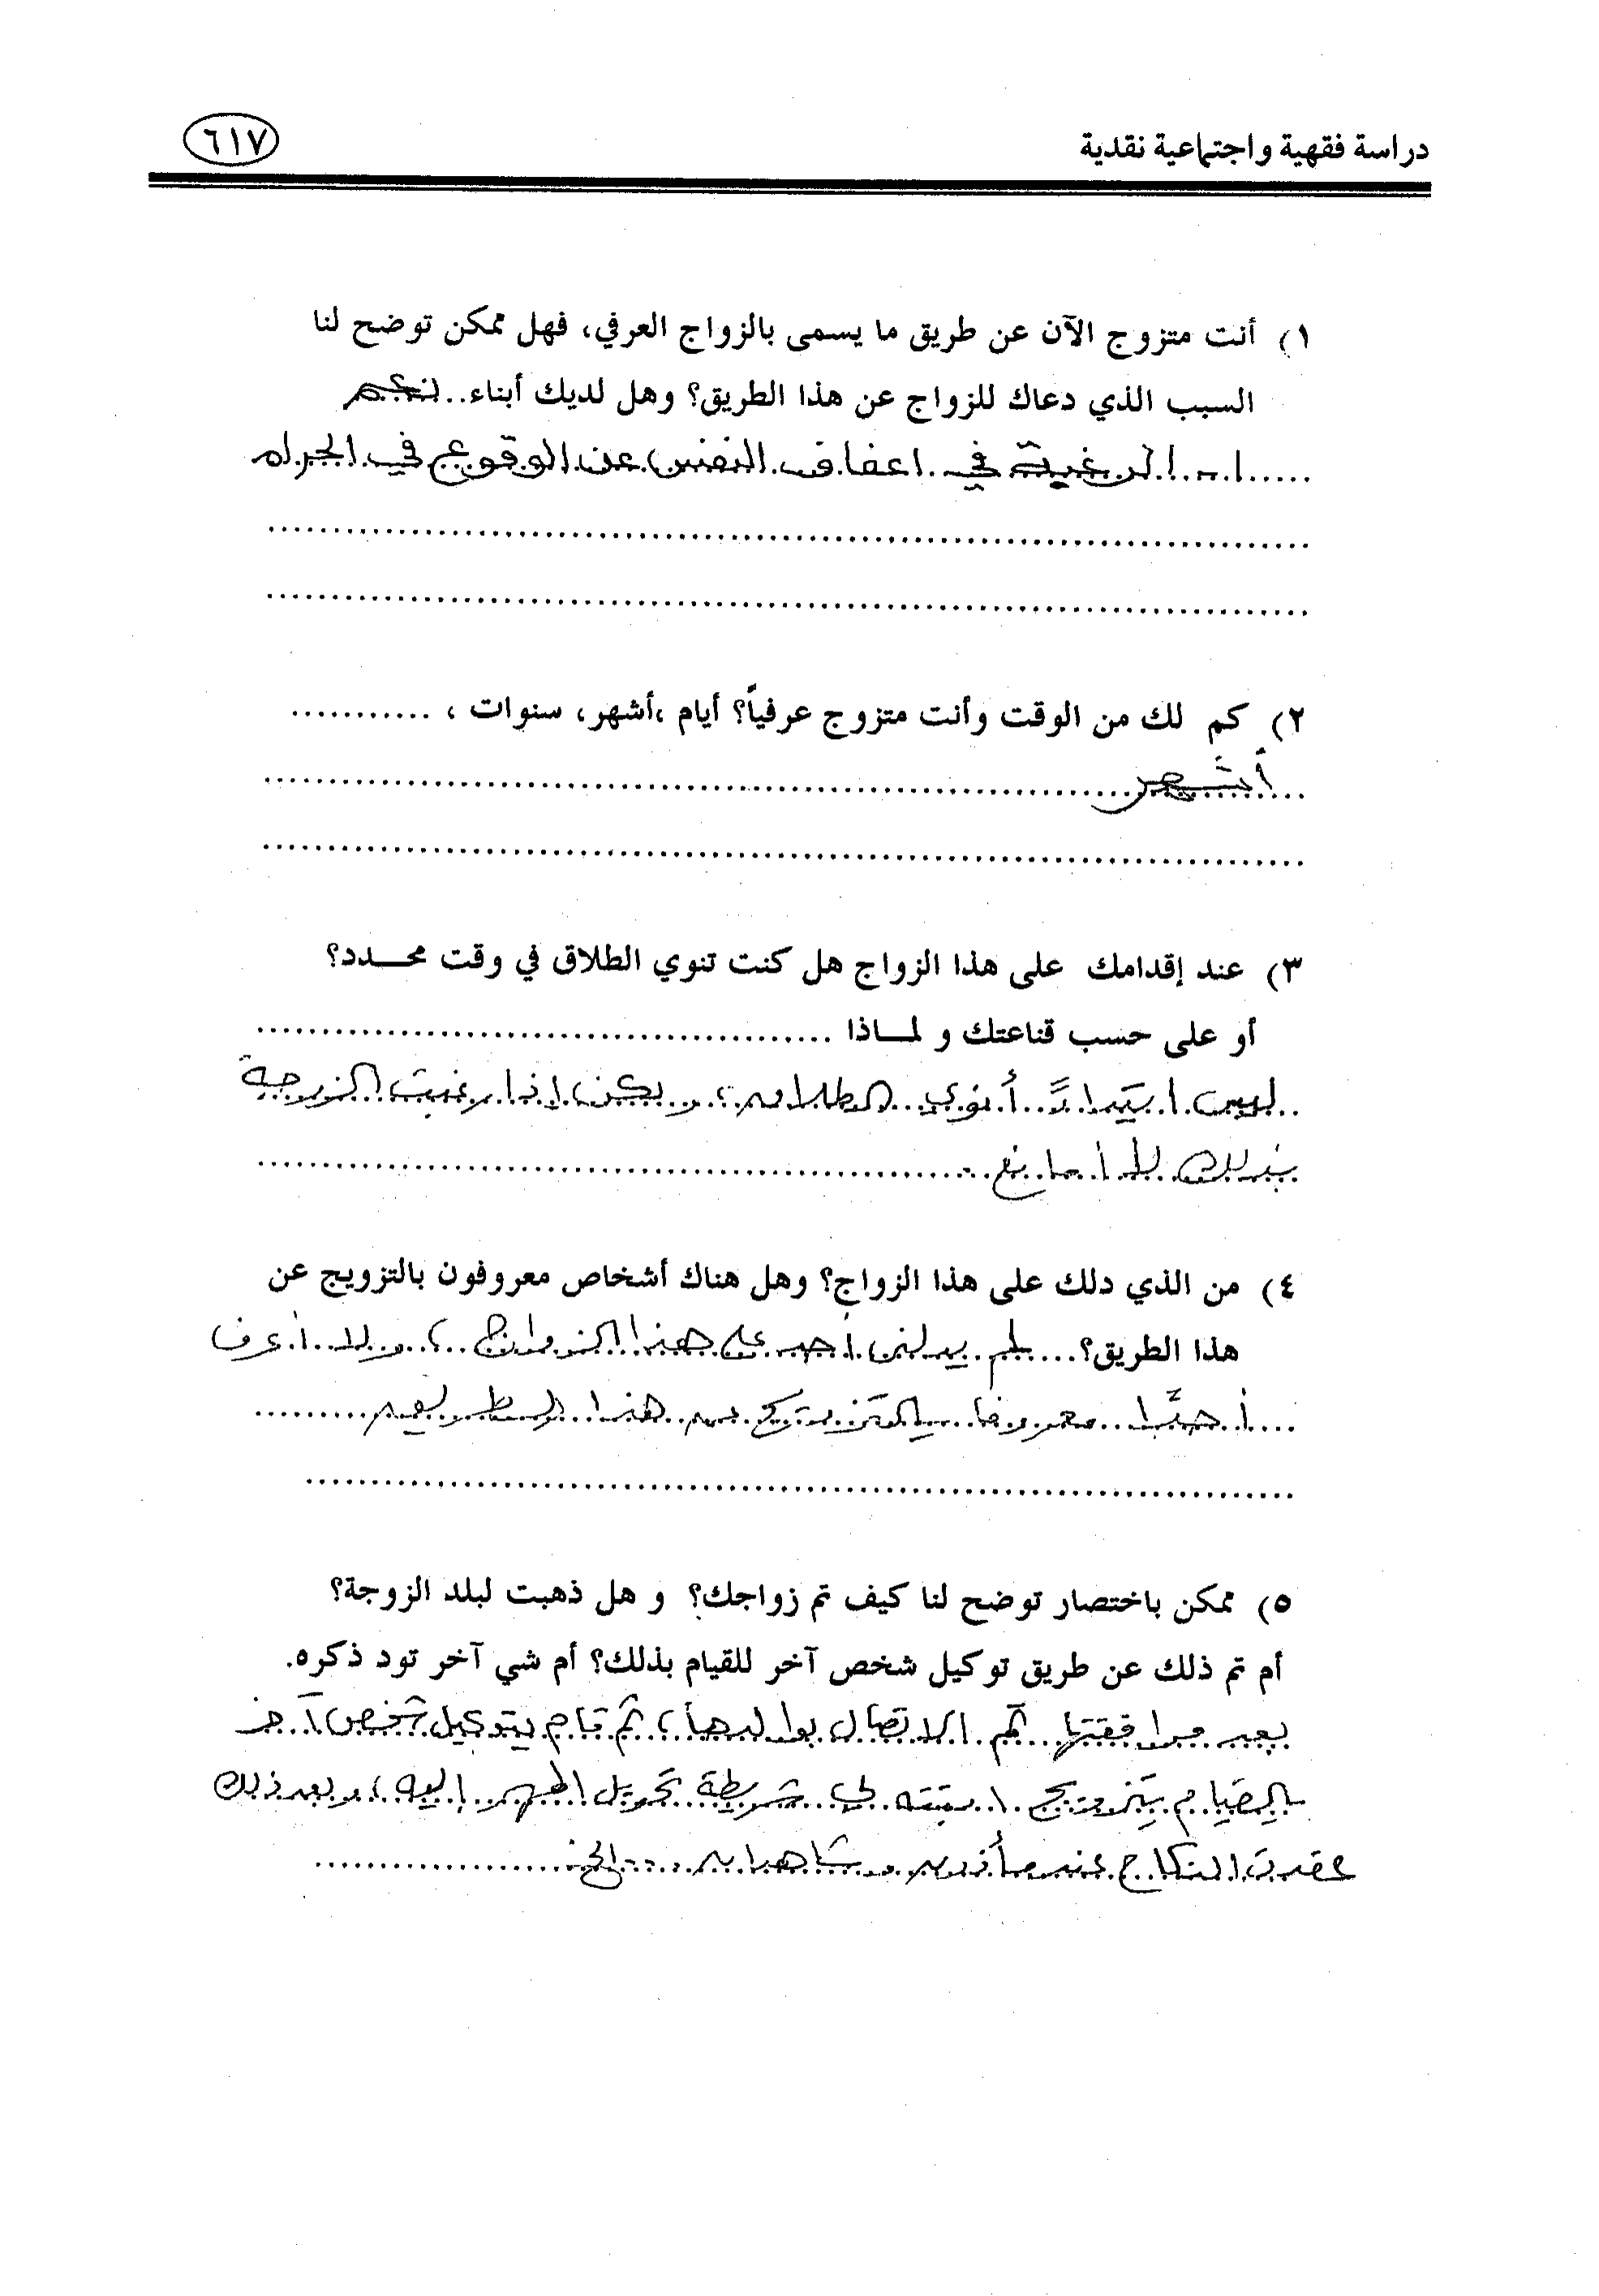 دراسة فقهية واجتماعية نقدية
٦١٧
١) أنت متزوج الآن عن طريق ما يسمى بالزواج العرفي، فهل ممكن توضح لنا
السبب الذي دعاك للزواج عن هذا الطريق؟ وهل لديك أبناء.. نعم
١- الرغبة في اعفاف النفس عن الوقوع في الحرام
٢) كم لك من الوقت وأنت متزوج عرفياً؟ أيام ،أشهر، سنوات ، ...........
أشهر
٣) عند إقدامك على هذا الزواج هل كنت تنوي الطلاق في وقت محـــدد؟
أو على حسب قناعتك و لمـــاذا ............................................
ليس ابتداءً أنوي الطلاق، ولكن إذا رغبت الزوجة
بذلك لا أمانع
٤) من الذي دلك على هذا الزواج؟ وهل هناك أشخاص معروفون بالتزويج عن
هذا الطريق؟.... لم يدلني أحد على هذا الزواج، ولا أعرف
أحدًا معروفا بالتزويج من هذا الطريق
٥) ممكن باختصار توضح لنا كيف تم زواجك؟ و هل ذهبت لبلد الزوجة؟
أم تم ذلك عن طريق توكيل شخص آخر للقيام بذلك؟ أم شي آخر تود ذكره.
بعد موافقتها تم الاتصال بوالدها، ثم قام بتوكيل شخص آخر
بالقيام بتزويج ابنته لي شريطة تحويل المهر إليه، وبعد ذلك
عقدت النكاح عند مأذون وشاهدين .... الخ